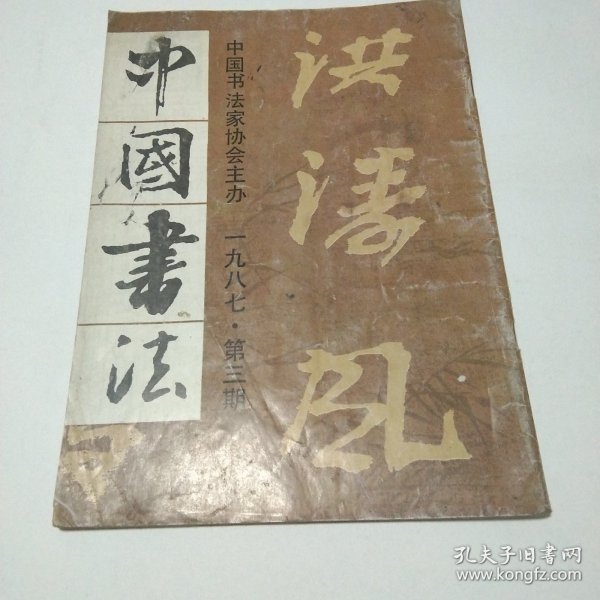 中國書法
中国书法家协会主办 一九八七·第三期
洪濤風
孔夫子旧书网
www.kongfz.com